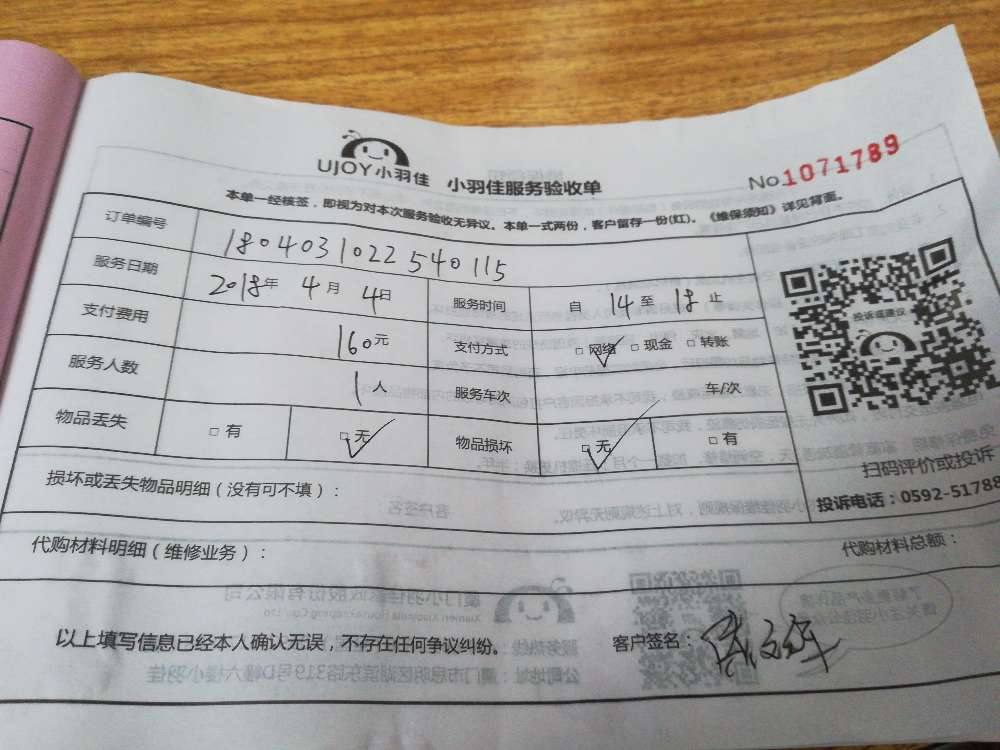 UJOY小羽佳 小羽佳服务验收单 No 1071789
本单一经核签，即视为对本次服务验收无异议。本单一式两份，客户留存一份(红)。《维保须知》详见背面。
订单编号 1804031022540115
服务日期 2018年 4月 4日 服务时间 自 14 至 18 止
支付费用 160元 支付方式 □网络 □现金 □转账
服务人数 1人 服务车次 车/次
物品丢失 □有 □无 物品损坏 □无 □有
投诉或建议
扫码评价或投诉
投诉电话：0592-51788
损坏或丢失物品明细（没有可不填）：
代购材料明细（维修业务）： 代购材料总额：
以上填写信息已经本人确认无误，不存在任何争议纠纷。 客户签名：